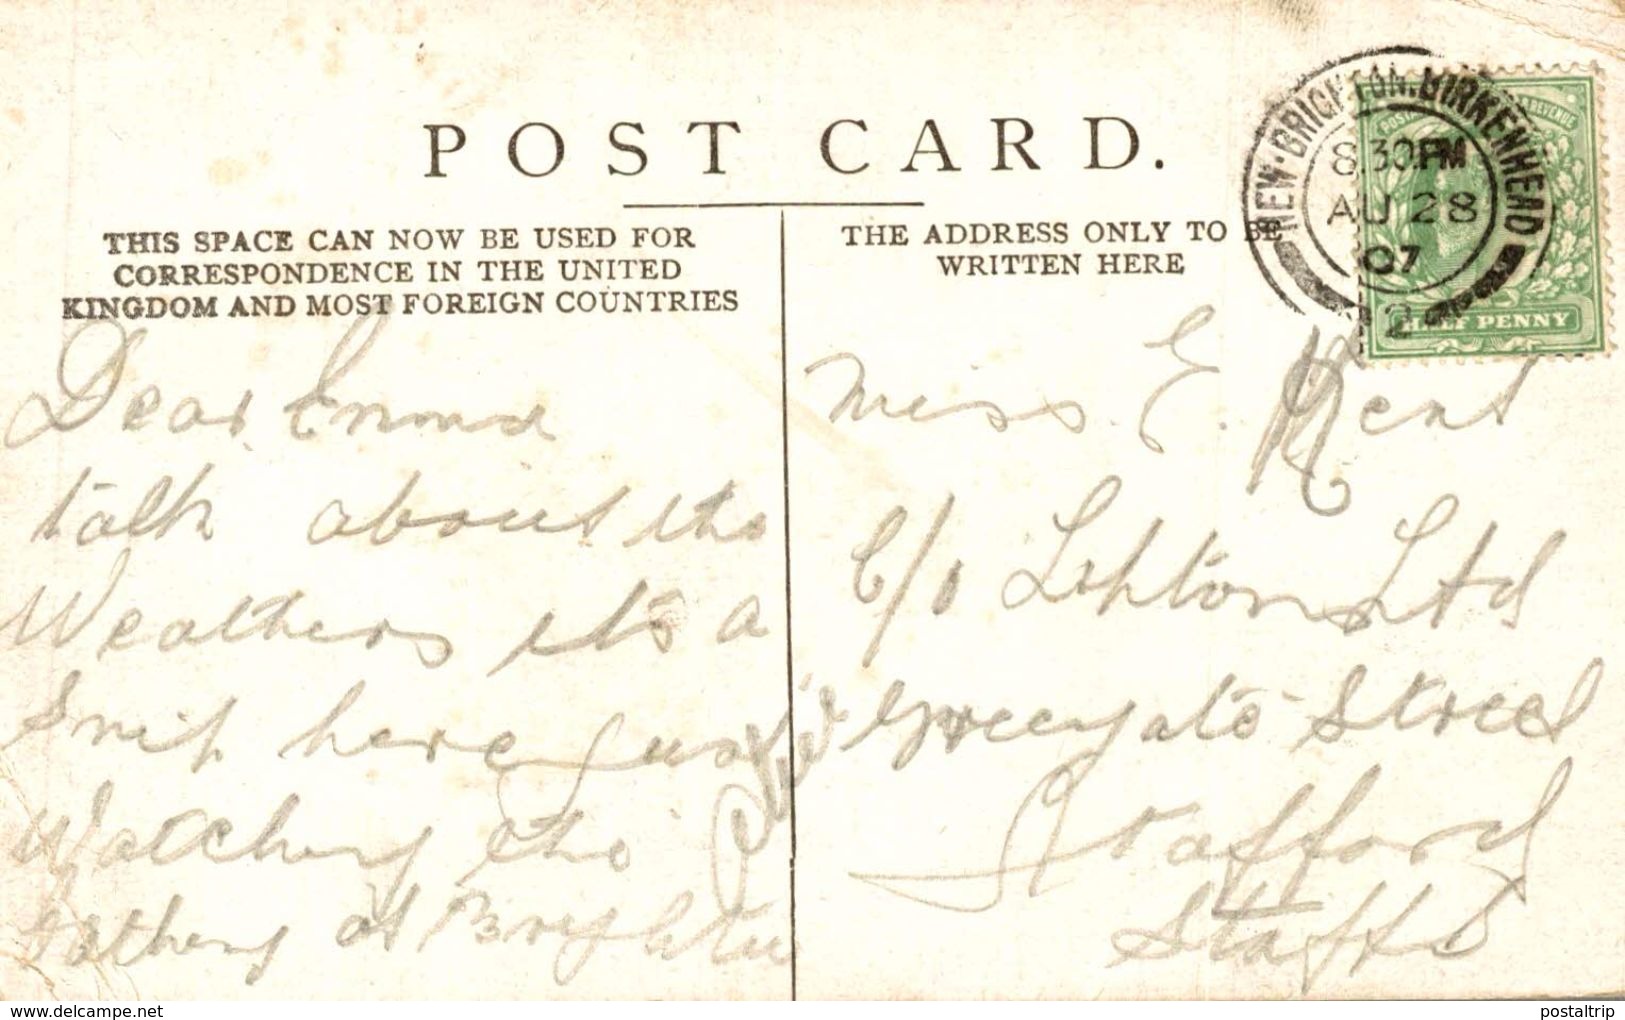 POST CARD.
THIS SPACE CAN NOW BE USED FOR
CORRESPONDENCE IN THE UNITED
KINGDOM AND MOST FOREIGN COUNTRIES
Dear Emma
talk about the
Weathers its a
here just
Watching the
Bathing at Brighton
THE ADDRESS ONLY TO BE
WRITTEN HERE
Miss. E. Kent
C/o Liptons Ltd
Greengate Street
Stafford
Staffs
NEW-BRIGHTON.BIRKENHEAD
8.30PM
AU 28
07
12
POSTAGE & REVENUE
HALF PENNY
www.delcampe.net
postaltrip